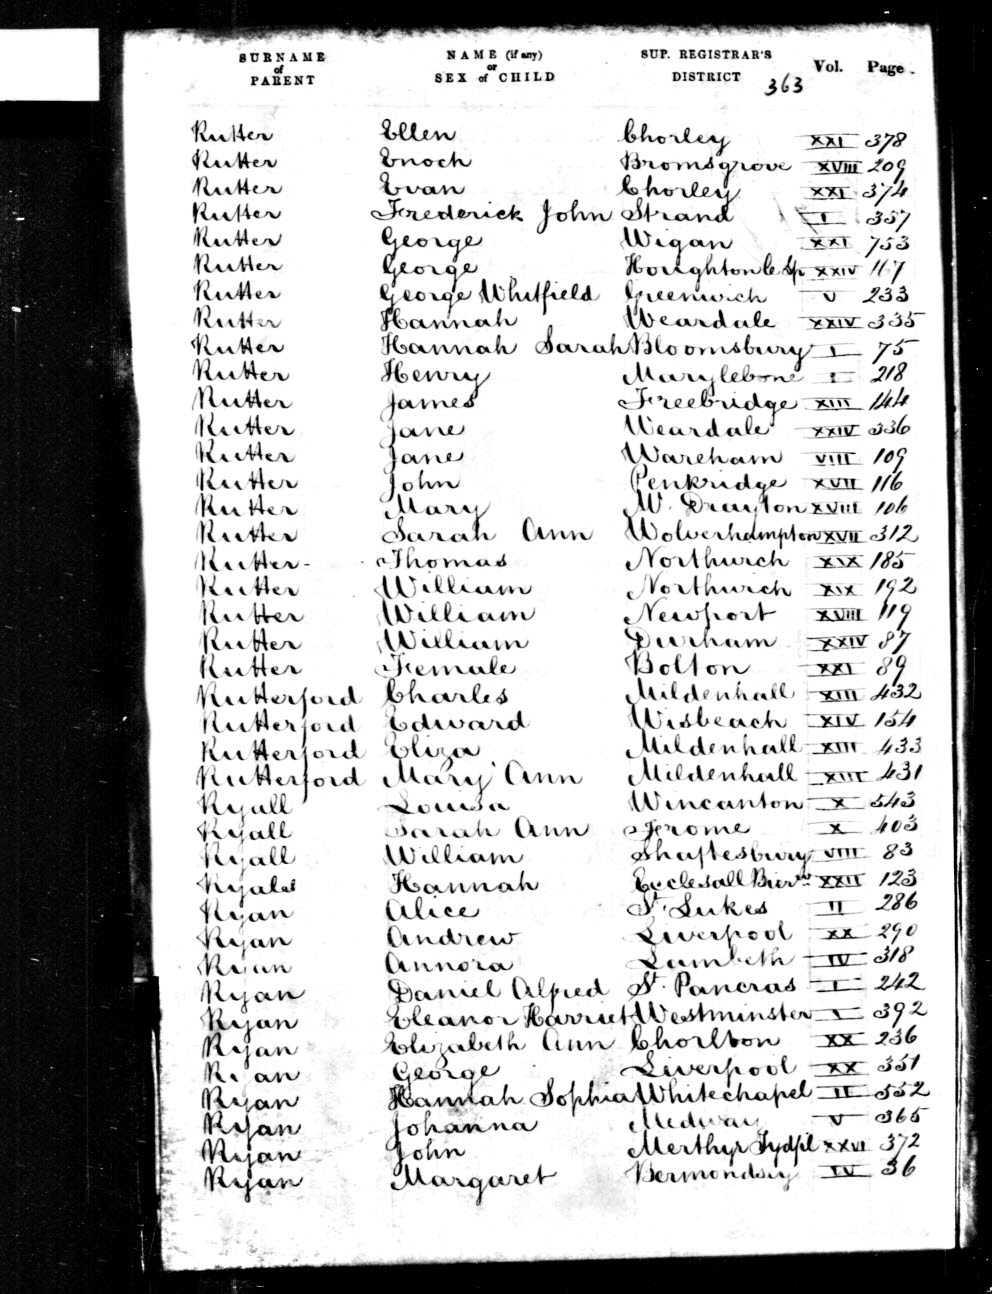 SURNAME of PARENT NAME (if any) or SEX of CHILD SUP. REGISTRAR'S DISTRICT Vol. Page
363
Rutter Ellen Chorley XXI 378
Rutter Enoch Bromsgrove XVIII 209
Rutter Evan Chorley XXI 374
Rutter Frederick John Strand I 357
Rutter George Wigan XXI 753
Rutter George Houghton le Sp XXIV 167
Rutter George Whitfield Greenwich V 233
Rutter Hannah Weardale XXIV 335
Rutter Hannah Sarah Bloomsbury I 75
Rutter Henry Marylebone I 218
Rutter James Freebridge XIII 144
Rutter Jane Weardale XXIV 336
Rutter Jane Wareham VIII 109
Rutter John Penkridge XVII 116
Rutter Mary M. Drayton XVIII 106
Rutter Sarah Ann Wolverhampton XVII 312
Rutter Thomas Northwich XIX 185
Rutter William Northwich XIX 192
Rutter William Newport XVIII 119
Rutter William Durham XXIV 87
Rutter Female Bolton XXI 89
Rutterford Charles Mildenhall XIII 432
Rutterford Edward Wisbeach XIV 154
Rutterford Eliza Mildenhall XIII 433
Rutterford Mary Ann Mildenhall XIII 431
Ryall Louisa Wincanton X 543
Ryall Sarah Ann Frome X 403
Ryall William Shaftesbury VIII 83
Ryals Hannah Ecclesall Bierw XXII 123
Ryan Alice St. Lukes II 286
Ryan Andrew Liverpool XX 290
Ryan Annora Lambeth IV 318
Ryan Daniel Alfred St. Pancras I 242
Ryan Eleanor Harriet Westminster I 392
Ryan Elizabeth Ann Chorlton XX 236
Ryan George Liverpool XX 351
Ryan Hannah Sophia Whitechapel II 552
Ryan Johanna Medway V 365
Ryan John Merthyr Tydfil XXVI 372
Ryan Margaret Bermondsey IV 36